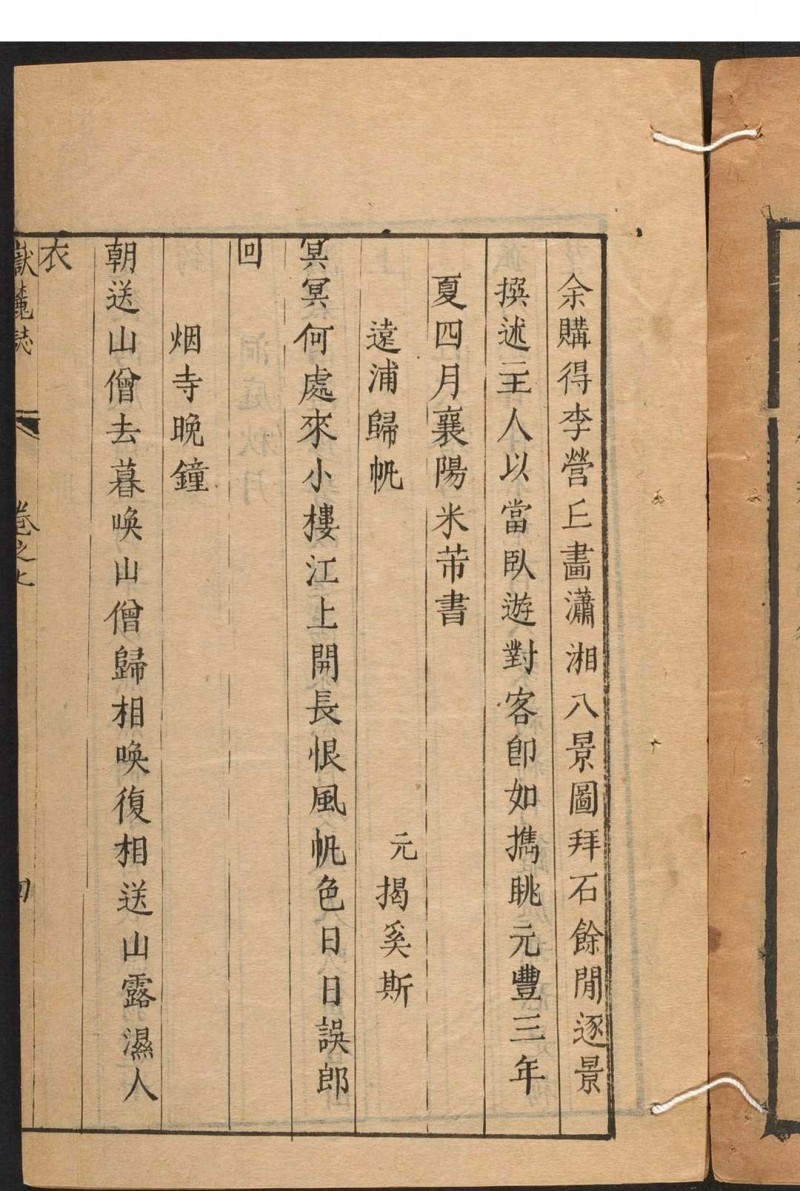 余購得李營丘畫瀟湘八景圖拜石餘閒逐景
撰述主人以當臥遊對客卽如擕眺元豐三年
夏四月襄陽米芾書
遠浦歸帆 元揭奚斯
冥冥何處來小樓江上開長恨風帆色日日誤郎
回
烟寺晚鐘
朝送山僧去暮喚山僧歸相喚復相送山露濕人
衣
嶽麓誌 卷之七 四